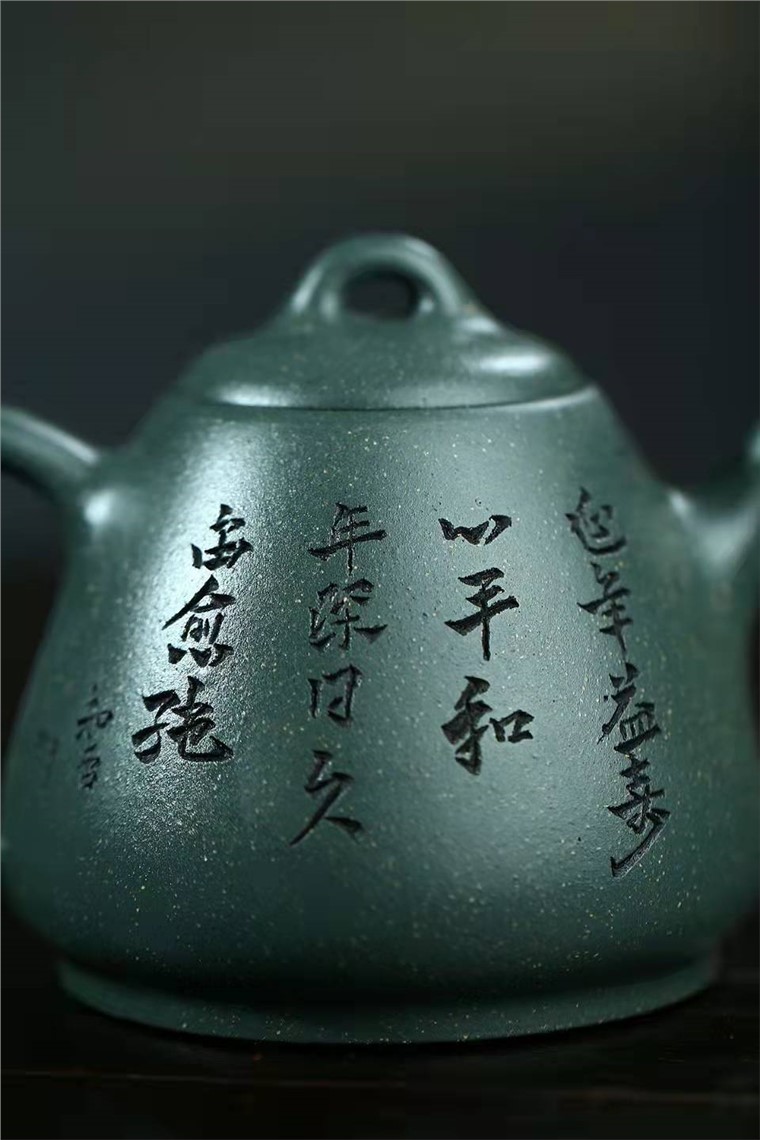 延年益寿
心平和
年深日久
愈